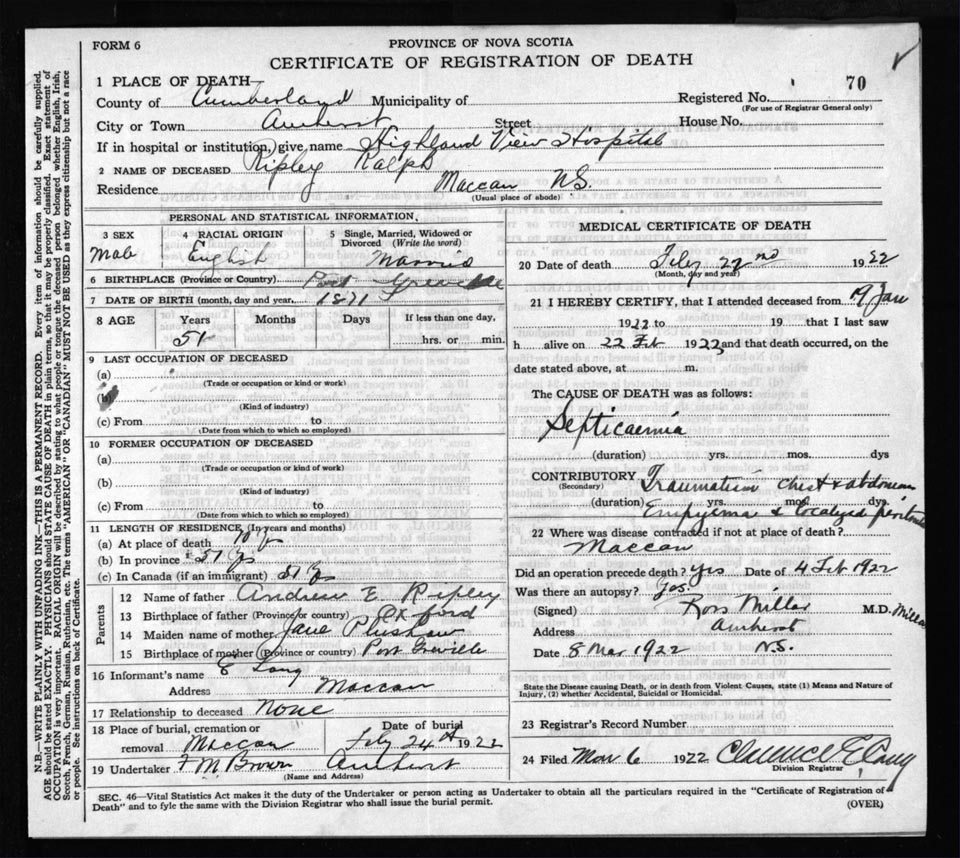 FORM 6
PROVINCE OF NOVA SCOTIA
CERTIFICATE OF REGISTRATION OF DEATH
1 PLACE OF DEATH—
County of Cumberland Municipality of
Registered No. 70
(For use of Registrar General only)
City or Town Amherst Street House No.
If in hospital or institution,) give name Highland View Hospital
2 NAME OF DECEASED Ripley Ralph
Residence Maccan N.S.
(Usual place of abode)
PERSONAL AND STATISTICAL INFORMATION.
3 SEX 4 RACIAL ORIGIN 5 Single, Married, Widowed or Divorced (Write the word)
English Married
6 BIRTHPLACE (Province or Country) Port Greville
7 DATE OF BIRTH (month, day and year, 1871
8 AGE Years Months Days If less than one day,
51 hrs. or min.
9 LAST OCCUPATION OF DECEASED
(a)
(Trade or occupation or kind or work)
(b)
(Kind of industry)
(c) From to
(Date from which to which so employed)
10 FORMER OCCUPATION OF DECEASED
(a)
(Trade or occupation or kind of work)
(b)
(Kind of industry)
(c) From to
(Date from which to which so employed)
11 LENGTH OF RESIDENCE (In years and months)
(a) At place of death 10 yrs
(b) In province 51 yrs
(c) In Canada (if an immigrant) 51 yrs
Parents
12 Name of father Andrew E. Ripley
13 Birthplace of father (Province or country) Oxford
14 Maiden name of mother Jane
15 Birthplace of mother (Province or country) Port Greville
16 Informant's name E Long
Address Maccan
17 Relationship to deceased None
18 Place of burial, cremation or removal Maccan
Date of burial Feby 24th 1922
19 Undertaker F M Brown Amherst
(Name and Address)
MEDICAL CERTIFICATE OF DEATH
20 Date of death Feby 22nd 1922
(Month, day and year)
21 I HEREBY CERTIFY, that I attended deceased from 19 Jan
1922 to 19 that I last saw
h alive on 22 Feb 1922 and that death occurred, on the
date stated above, at m.
The CAUSE OF DEATH was as follows:
Septicaemia
(duration) yrs. mos. dys
CONTRIBUTORY Traumatism chest & abdomen
(Secondary)
(duration) yrs. mos. dys.
Empyema & localized peritonitis
22 Where was disease contracted if not at place of death?
Maccan
Did an operation precede death? Yes Date of 4 Feb 1922
Was there an autopsy?
(Signed) Ross Millar M.D.
Millar
Address Amherst
Date 8 Mar 1922 N.S.
State the Disease causing Death, or in death from Violent Causes, state (1) Means and Nature of
Injury, (2) whether Accidental, Suicidal or Homicidal.
23 Registrar's Record Number
24 Filed Mar 6 1922 Clarence E
Division Registrar
SEC. 46—Vital Statistics Act makes it the duty of the Undertaker or person acting as Undertaker to obtain all the particulars required in the "Certificate of Registration of
Death" and to fyle the same with the Division Registrar who shall issue the burial permit.
(OVER)
N.B.—WRITE PLAINLY WITH UNFADING INK—THIS IS A PERMANENT RECORD. Every item of information should be carefully supplied.
AGE should be stated EXACTLY. PHYSICIANS should STATE CAUSE OF DEATH in plain terms, so that it may be properly classified. Exact statement of
OCCUPATION is very important. RACIAL ORIGIN will be described by stating to what people or tongue the deceased person belonged whether English, Irish,
Scotch, French, German, Russian, Ruthenian, etc. The terms "AMERICAN" OR "CANADIAN" MUST NOT BE USED as they express citizenship but not a race
or people. See instructions on back of Certificate.